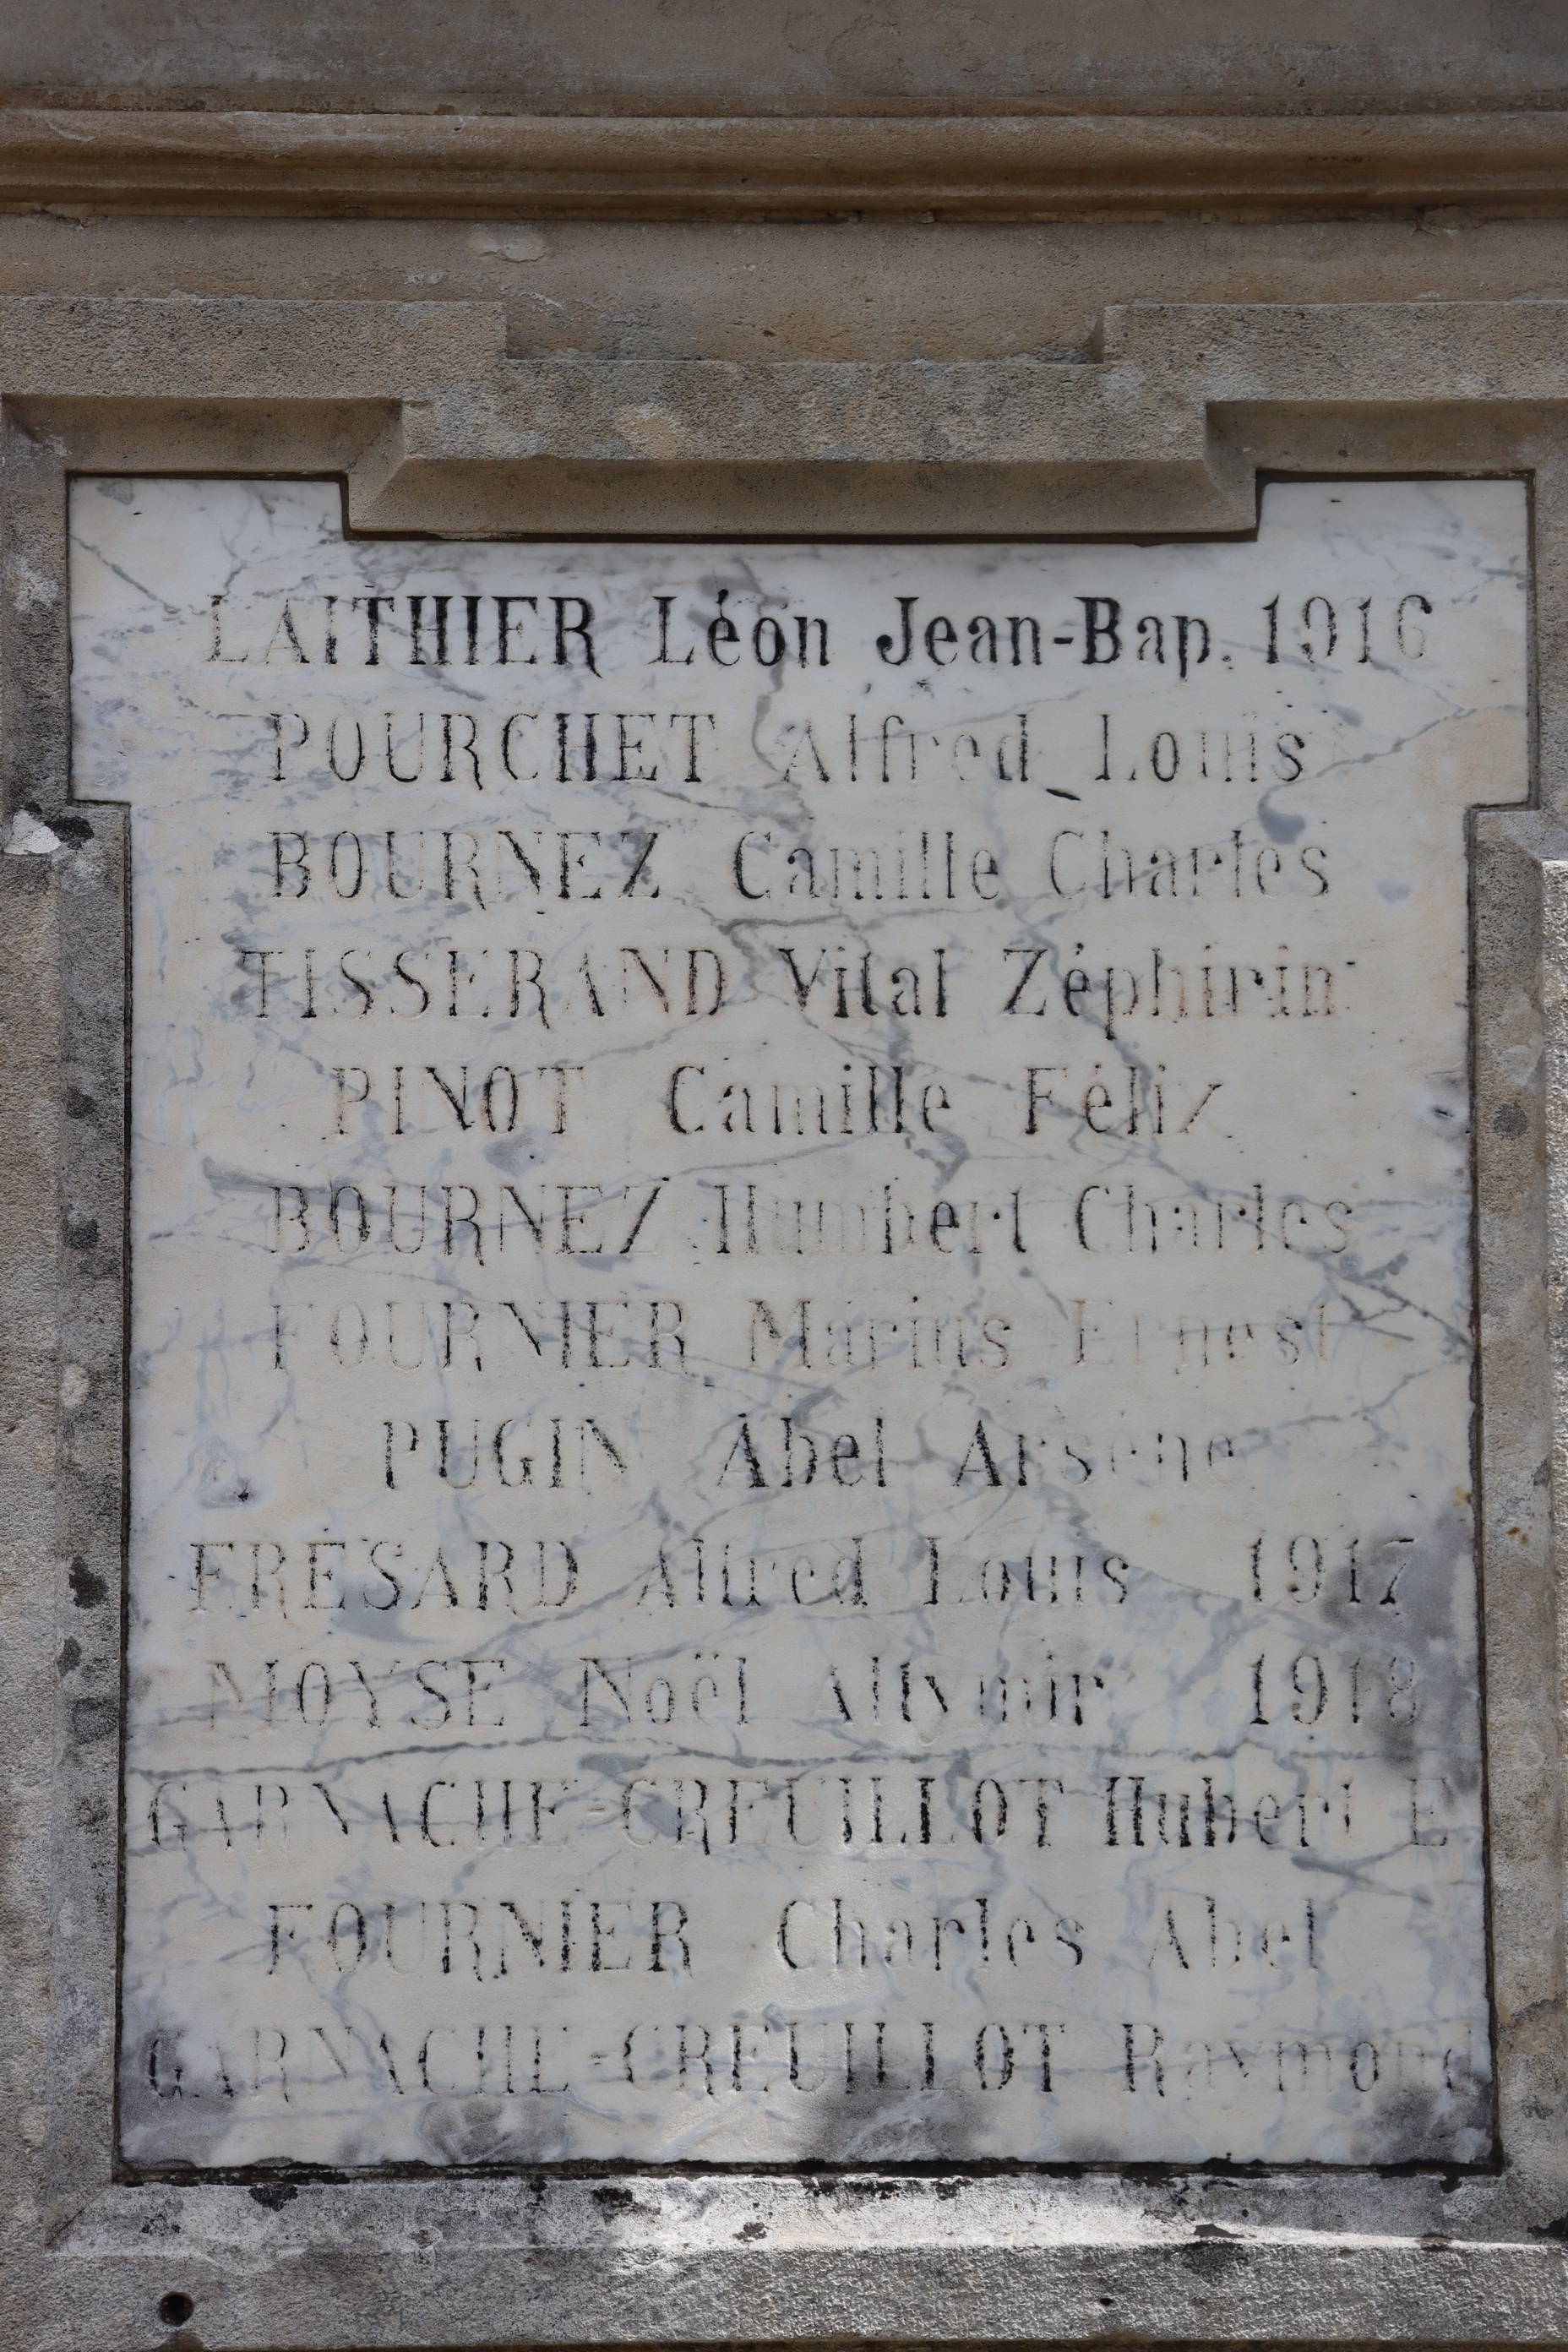 LAITHIER Léon Jean-Bap. 1916
POURCHET Alfred Louis
BOURNEZ Camille Charles
TISSERAND Vital Zéphirin
PINOT Camille Félix
BOURNEZ Humbert Charles
FOURNIER Marius Ernest
PUGIN Abel Arsène
FRÉSARD Alfred Louis 1917
MOYSE Noël 1918
GARNACHE-CREUILLOT Hubert E.
FOURNIER Charles Abel
GARNACHE-CREUILLOT Raymond